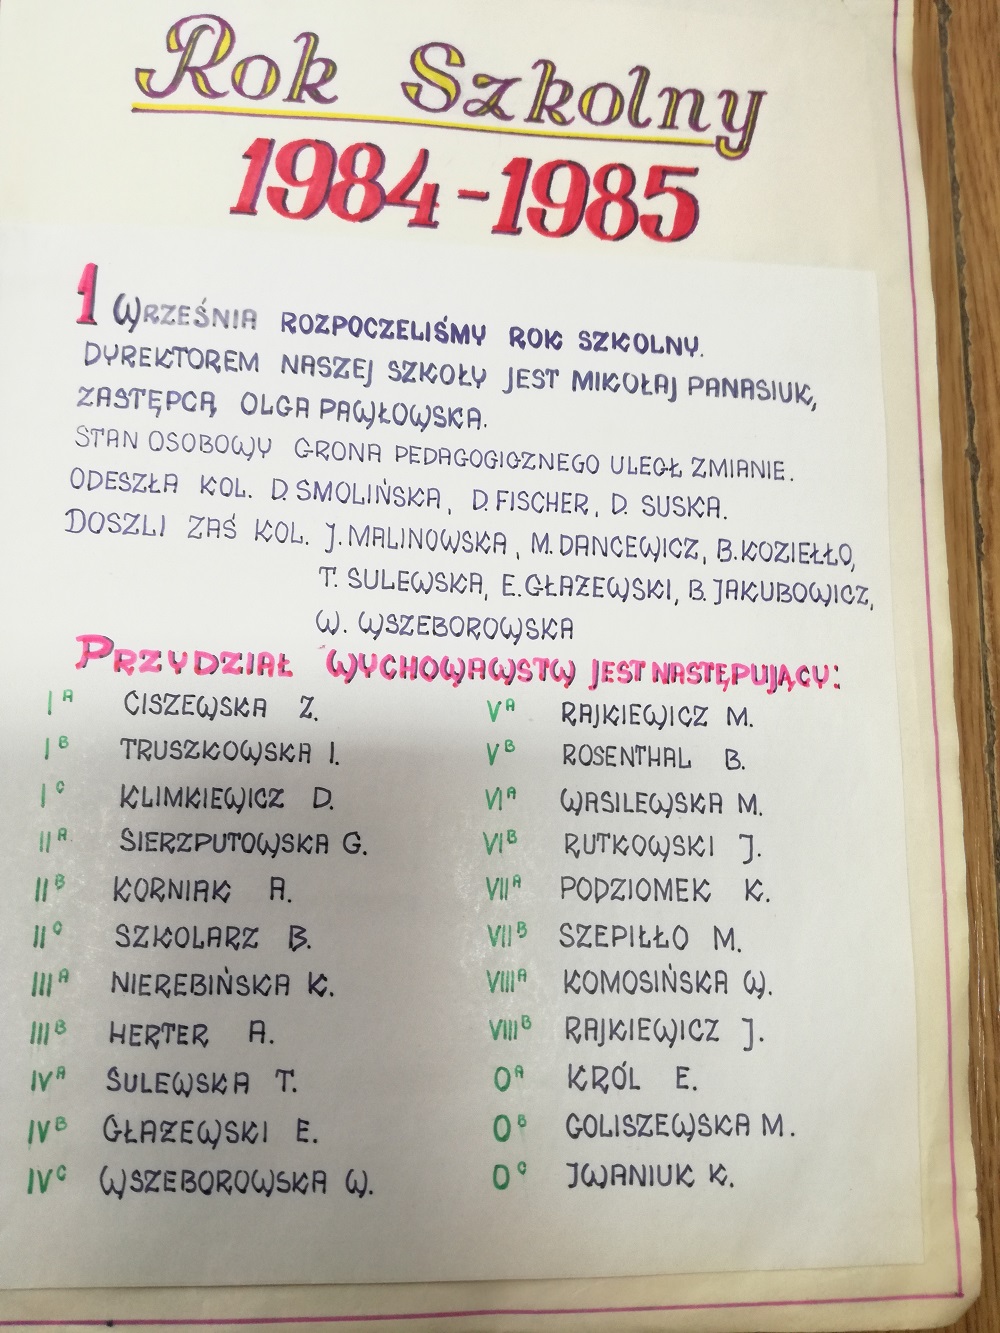 Rok Szkolny
1984-1985
1 WRZEŚNIA ROZPOCZELIŚMY ROK SZKOLNY.
DYREKTOREM NASZEJ SZKOŁY JEST MIKOŁAJ PANASIUK,
ZASTĘPCĄ OLGA PAWŁOWSKA.
STAN OSOBOWY GRONA PEDAGOGICZNEGO ULEGŁ ZMIANIE.
ODESZŁA KOL. D. SMOLIŃSKA, D. FISCHER, D. SUSKA.
DOSZLI ZAŚ KOL. J. MALINOWSKA, M. DANCEWICZ, B. KOZIEŁŁO,
T. SULEWSKA, E. GŁAZEWSKI, B. JAKUBOWICZ,
W. WSZEBOROWSKA
PRZYDZIAŁ WYCHOWAWSTW JEST NASTĘPUJĄCY:
I A CISZEWSKA Z.
I B TRUSZKOWSKA I.
I C KLIMKIEWICZ D.
II A SIERZPUTOWSKA G.
II B KORNIAK A.
II C SZKOLARZ B.
III A NIEREBIŃSKA K.
III B HERTER A.
IV A SULEWSKA T.
IV B GŁAZEWSKI E.
IV C WSZEBOROWSKA W.
V A RAJKIEWICZ M.
V B ROSENTHAL B.
VI A WASILEWSKA M.
VI B RUTKOWSKI J.
VII A PODZIOMEK K.
VII B SZEPIŁŁO M.
VIII A KOMOSIŃSKA W.
VIII B RAJKIEWICZ J.
O A KRÓL E.
O B GOLISZEWSKA M.
O C IWANIUK K.